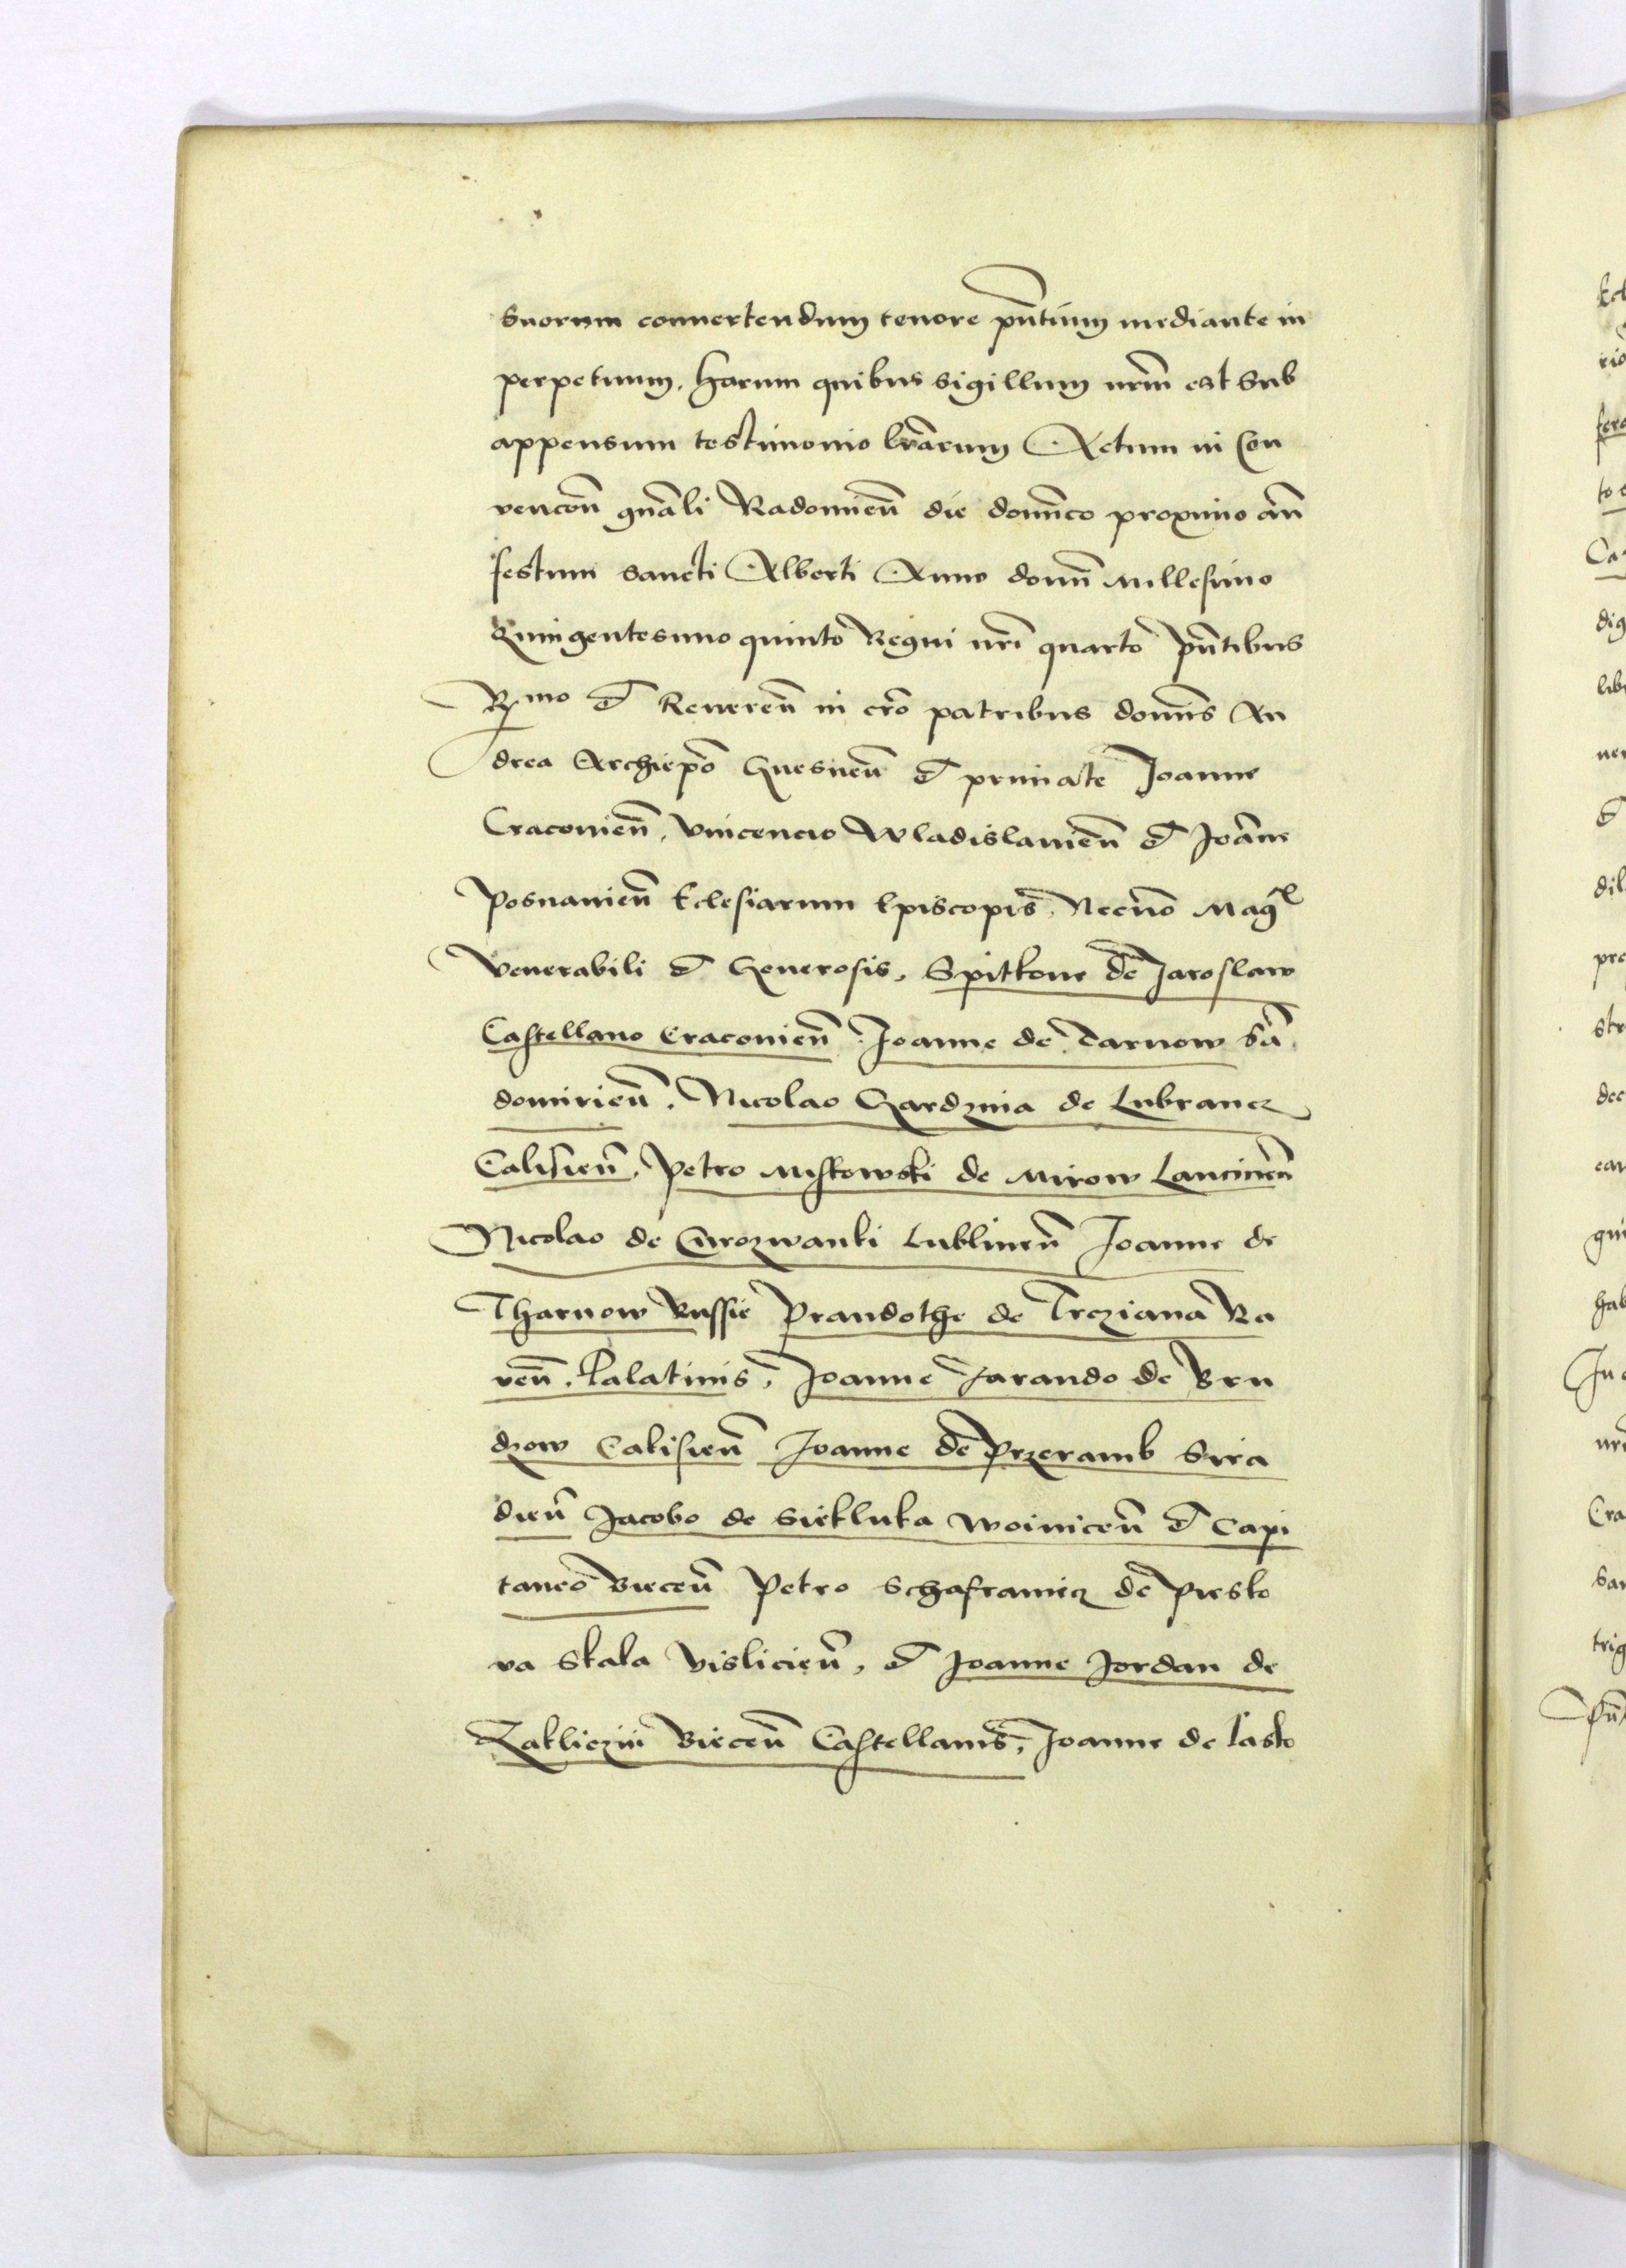 suorum conuertendum tenore pn̄tium mediante in
perpetuum. harum quibus sigillum nr̄m est sub
appensum testimonio lr̄arum Actum in Con
vencōn gn̄ali Radomien̄ die domīco proximo an̄
festum sancti Alberti Anno domī Millesimo
Quingentesimo quinto Regni nr̄i quarto pn̄tibus
Rmo et Reueren̄ in cr̄o patribus domīs An
drea Archiepō Gnesnen̄ et primate Joanne
Cracovien̄, Vincencio Wladislavien̄ et Joāne
Posnanien̄ Eclesiarum Episcopis, Necnō Mag
Venerabili et Generosis, Spitkone de Jaroslaw
Castellano Cracovien̄. Joanne de Tarnow Sā
domirien̄. Nicolao Gardzina de Lubrancz
Calisien̄, Petro Miskowski de Mirow Lancicien̄
Nicolao de Curozwanki Lublinen̄ Joanne de
Tharnow Russie Prandothe de Trcziana Ra
ven̄. Palatinis, Joanne Jarando de Bru
dzow Calisien̄ Joanne de Przeramb Sira
dien̄ Jacobo de Siekluka Woinicen̄ et Capi
taneo Biecen̄ Petro Schafraniecz de Piesko
va Skala Vislicien̄, et Joanne Jordan de
Zakliczin Biecen̄ Castellanis, Joanne de Lasko